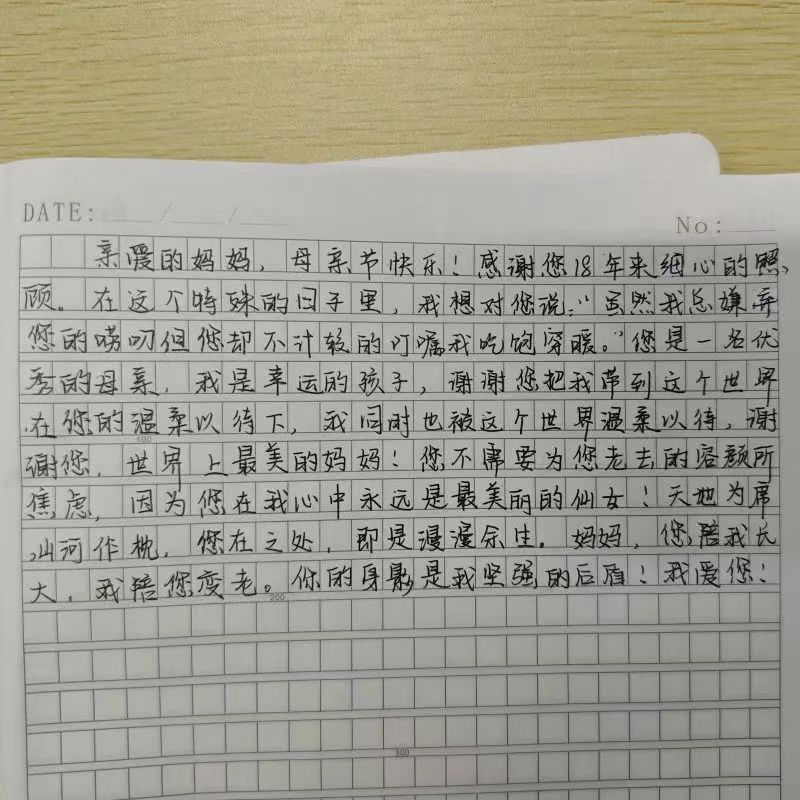 DATE: / /
No:
亲爱的妈妈，母亲节快乐！感谢您18年来细心的照
顾。在这个特殊的日子里，我想对您说："虽然我总嫌弃
您的唠叨但您却不计较的叮嘱我吃饱穿暖。"您是一名优
秀的母亲，我是幸运的孩子，谢谢您把我带到这个世界
在您的温柔以待下，我同时也被这个世界温柔以待，谢
100
谢您，世界上最美的妈妈！您不需要为您老去的容颜所
焦虑，因为您在我心中永远是最美丽的仙女！天地为席
山河作枕，您在之处，即是漫漫余生。妈妈，您陪我长
大，我陪您变老。你的身影是我坚强的后盾！我爱您！
200
300